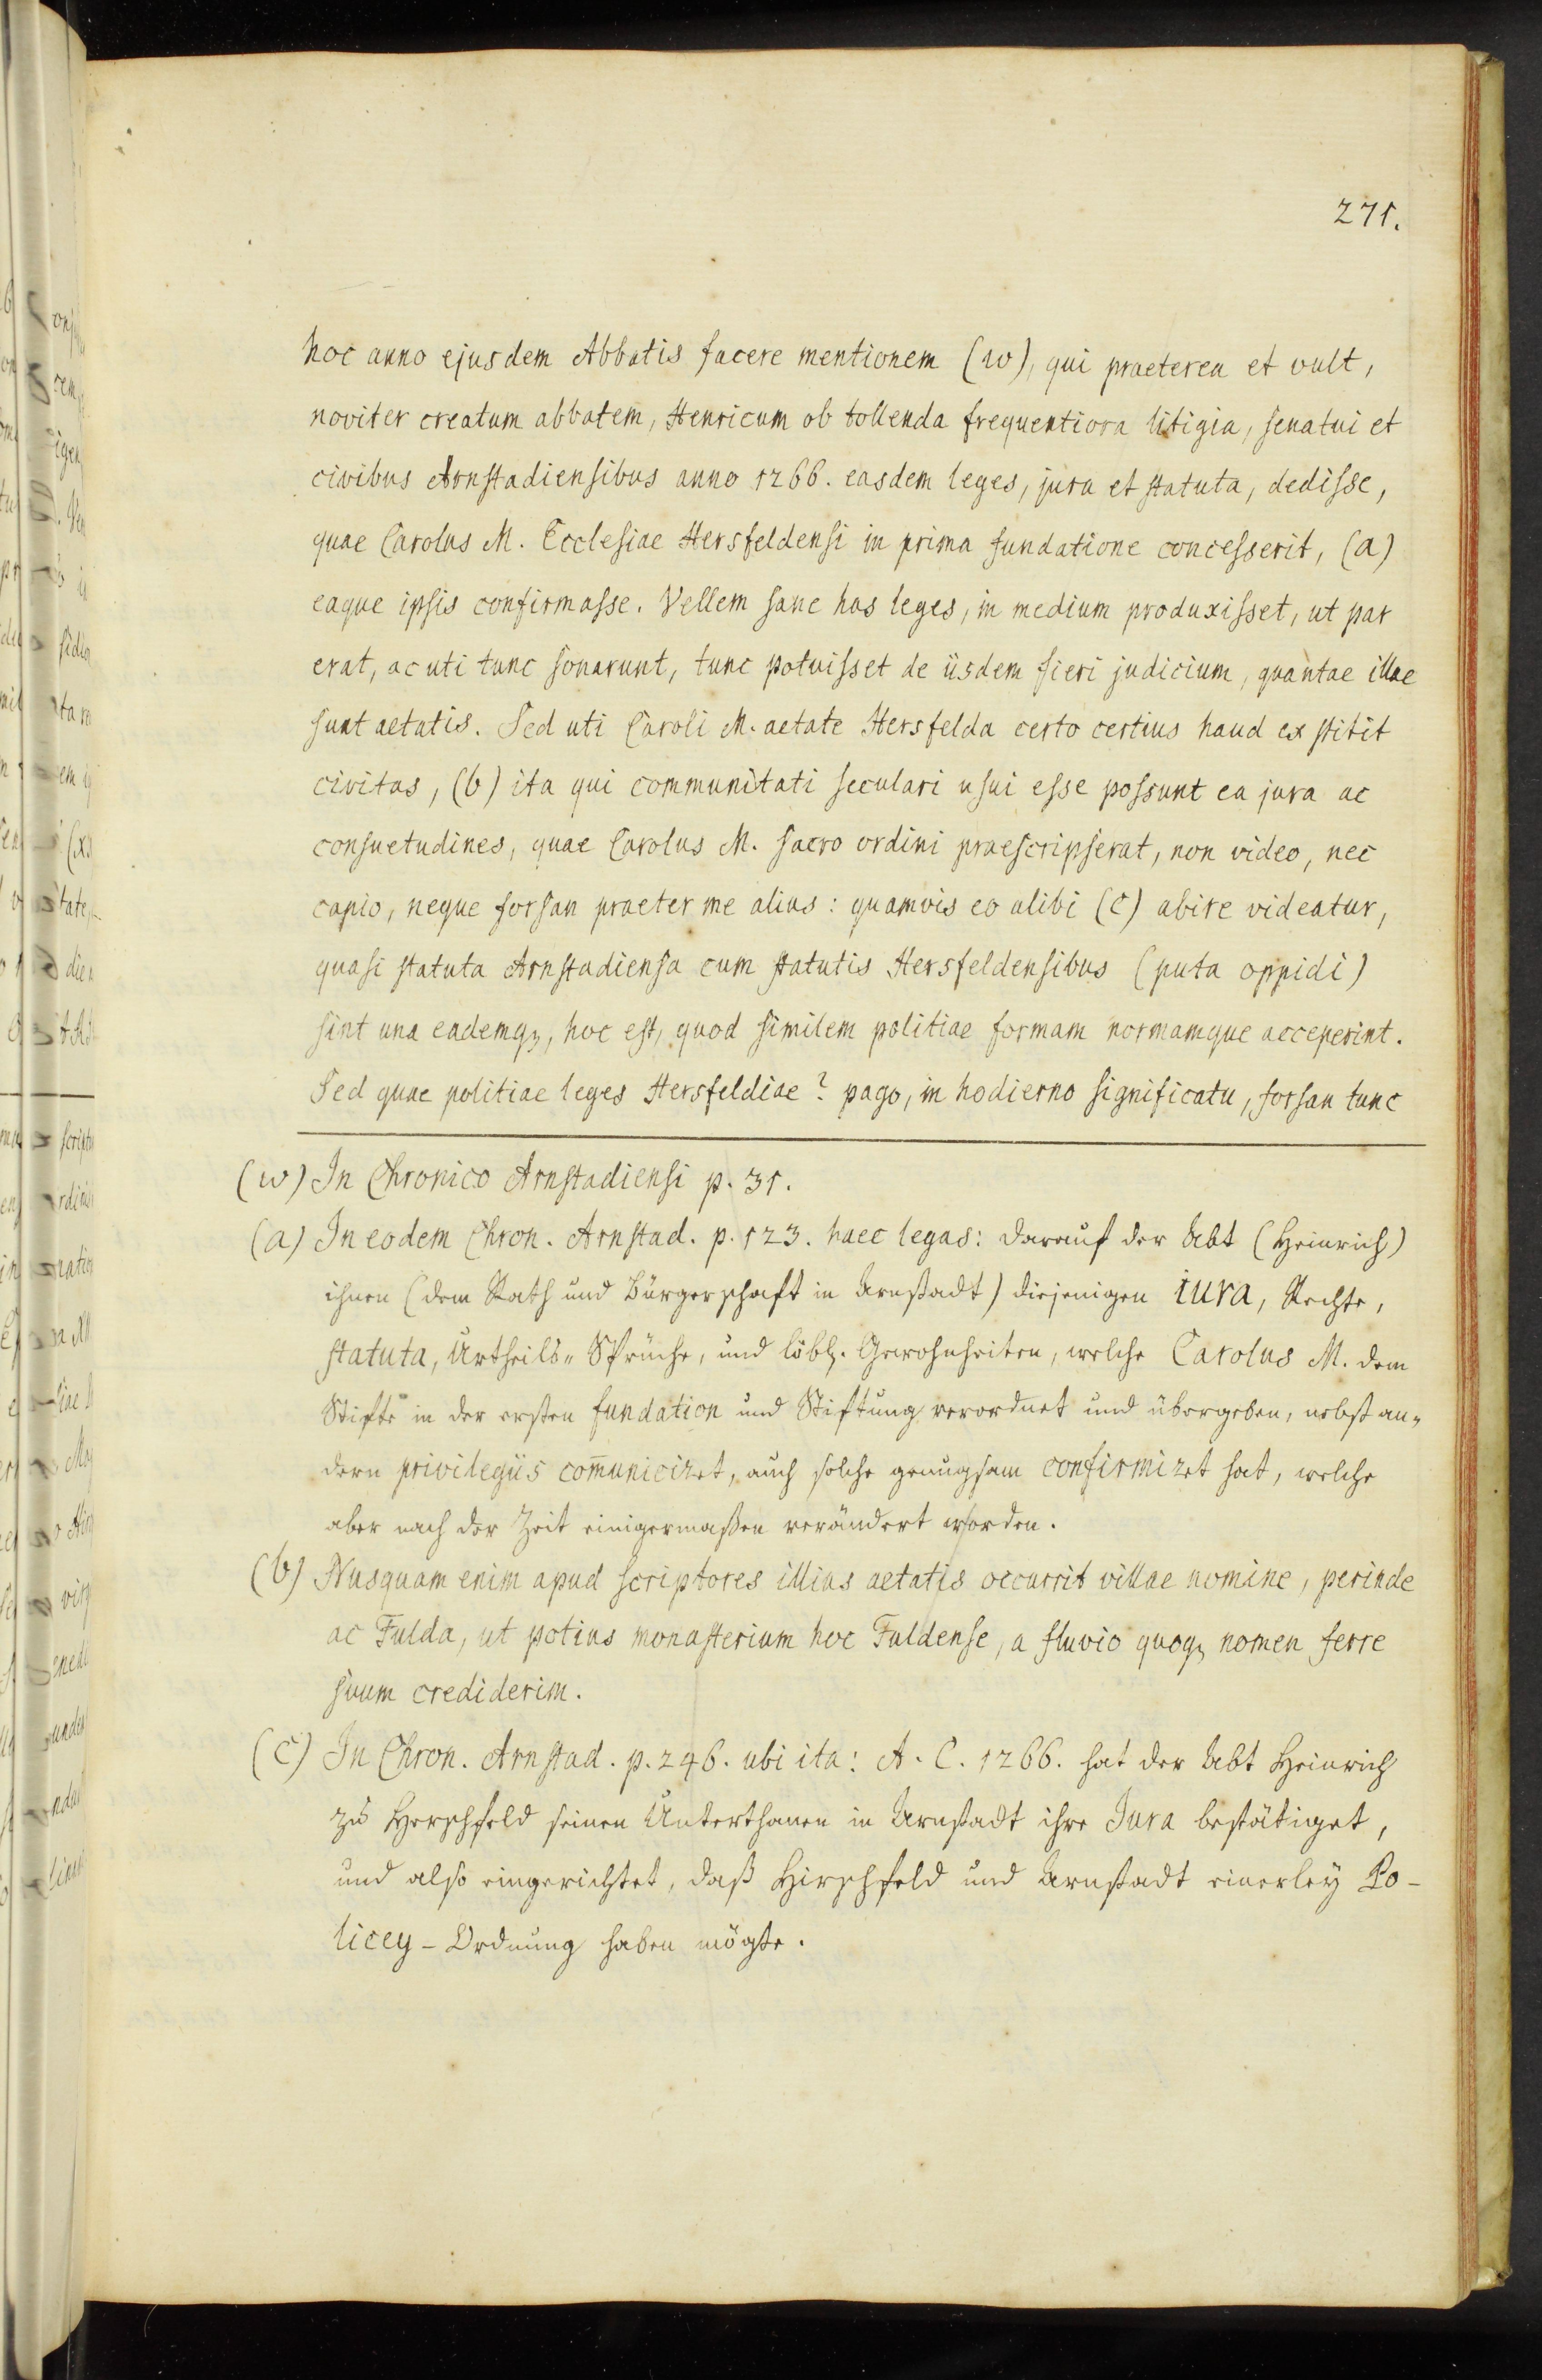 271.
hoc anno ejusdem Abbatis facere mentionem (w), qui praeterea et vult,
noviter creatum abbatem, Henricum ob tollenda frequentiora litigia, senatui et
civibus Arnstadiensibus anno 1266. easdem leges, jura et statuta, dedisse,
quae Carolus M. Ecclesiae Hersfeldensi in prima fundatione concesserit, (a)
eaque ipsis confirmasse. Vellem sane has leges, in medium produxisset, ut par
erat, ac uti tunc sonarunt, tunc potuisset de iisdem fieri judicium, quantae illae
sunt aetatis. Sed uti Caroli M. aetate Hersfelda certo certius haud exstitit
civitas, (b) ita qui communitati seculari usui esse possunt ea jura ac
consuetudines, quae Carolus M. sacro ordini praescripserat, non video, nec
capio, neque forsan praeter me alius: quamvis eo alibi (c) abire videatur,
quasi statuta Arnstadiensa cum statutis Hersfeldensibus (puta oppidi)
sint una eademq3, hoc est, quod similem politiae formam normamque acceperint.
Sed quae politiae leges Hersfeldiae? pago, in hodierno significatu, forsan tunc
(w) In Chronico Arnstadiensi p. 31.
(a) In eodem Chron. Arnstad. p. 123. haec legas: Darauf der Abt (Heinrich)
ihnen (dem Rath und Bürgerschaft in Arnstadt) diejenigen iura, Rechte,
statuta, Urtheils„ Sprüche, und löbl. Gewohnheiten, welche Carolus M. dem
Stifte in der ersten fundation und Stiftung verordnet und übergeben, nebst an„
dern privilegiis com̅uniciret, auch solche genugsam confirmiret hat, welche
aber nach der Zeit einigermaßen verändert worden.
(b) Nusquam enim apud scriptores illius aetatis occurrit villae nomine, perinde
ac Fulda, ut potius monasterium hoc Fuldense, a fluvio quoq3 nomen ferre
suum crediderim.
(c) In Chron. Arnstad. p. 246. ubi ita: A. C. 1266. hat der Abt Heinrich
zu Herschfeld seinen Unterthanen in Arnstadt ihre Jura bestätiget,
und also eingerichtet, daß Hirschfeld und Arnstadt einerley Po-
licey-Ordnung haben mögte.